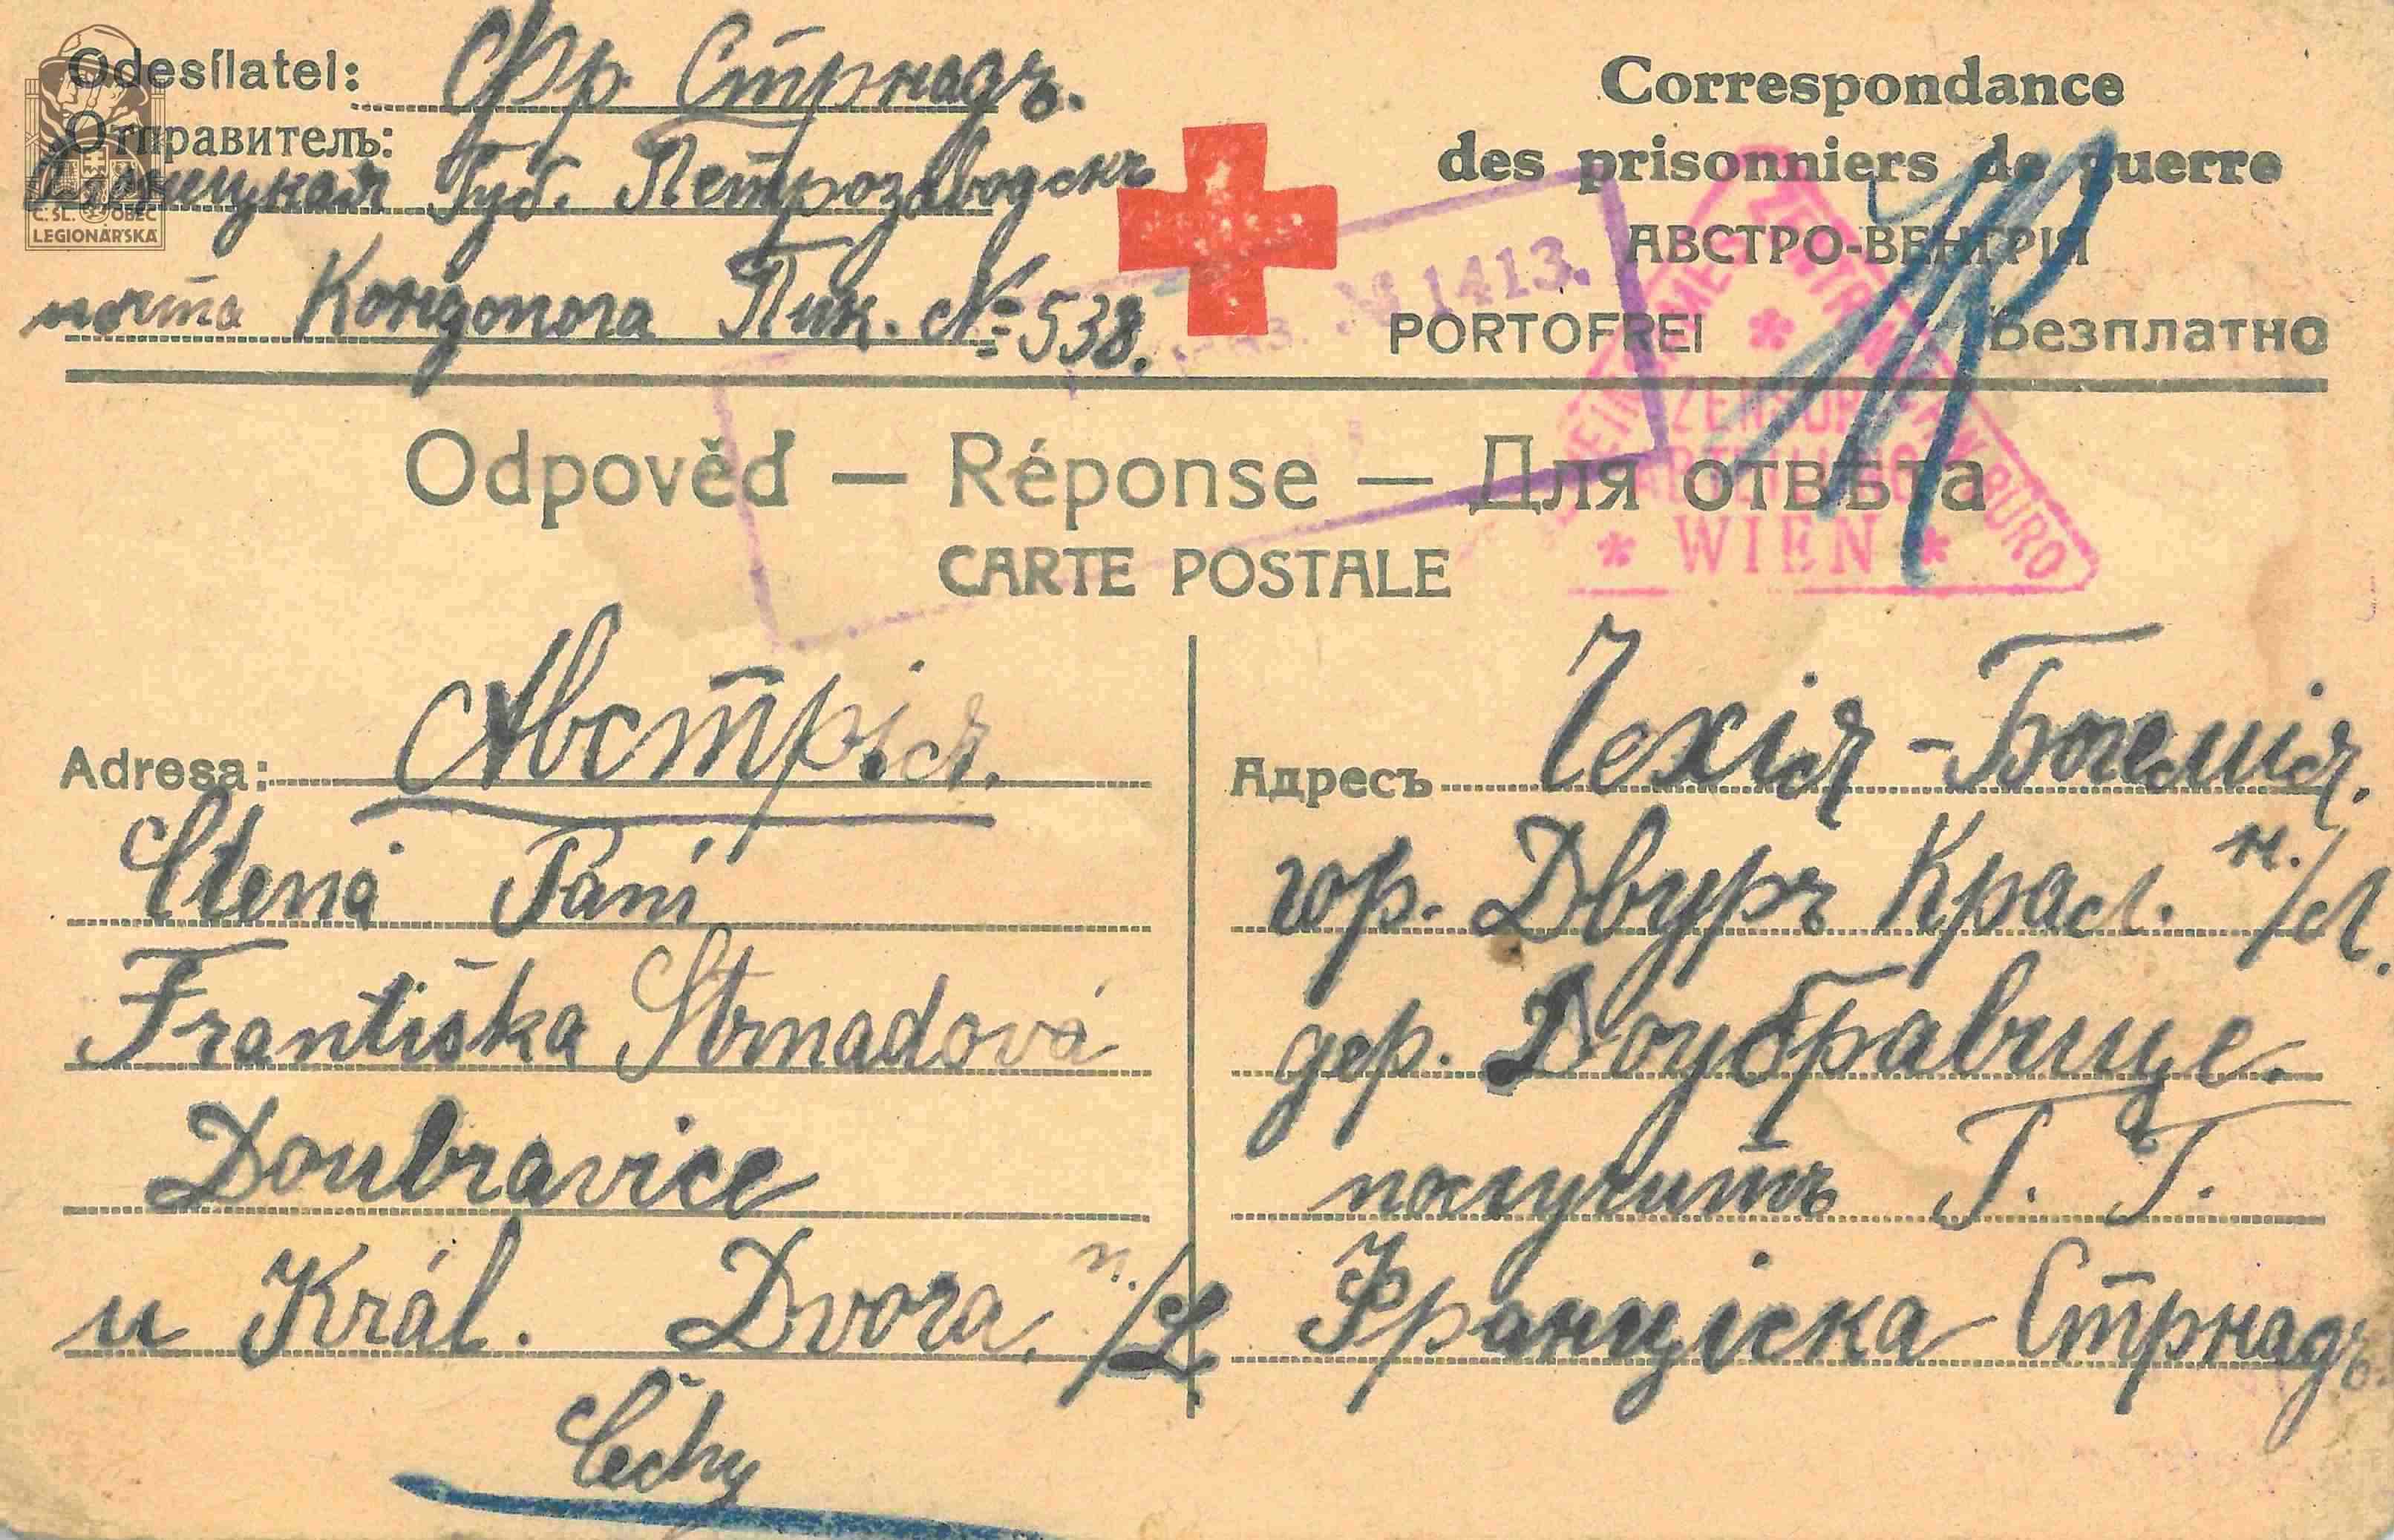 Odesílatel: Фр. Стрнадъ.
Отправитель:
Губ. Петрозаводскъ
почта Кондопога Пик. № 538.
Č. SL. OBEC
LEGIONÁŘSKÁ
Correspondance
des prisonniers de guerre
АВСТРО-ВЕНГРІЯ
PORTOFREI Безплатно
№ 1413.
ZENSUR
WIEN
Odpověď — Réponse — Для отвѣта
CARTE POSTALE
Adresa: Австрія.
Ctená Paní
Františka Strnadová
Doubravice
u Král. Dvora n./L
Čechy
Адресъ Чехія - Богемія.
гор. Двуръ Крал. н./Л.
дер. Доубравице.
получитъ Г. Г.
Франціска Стрнадъ.